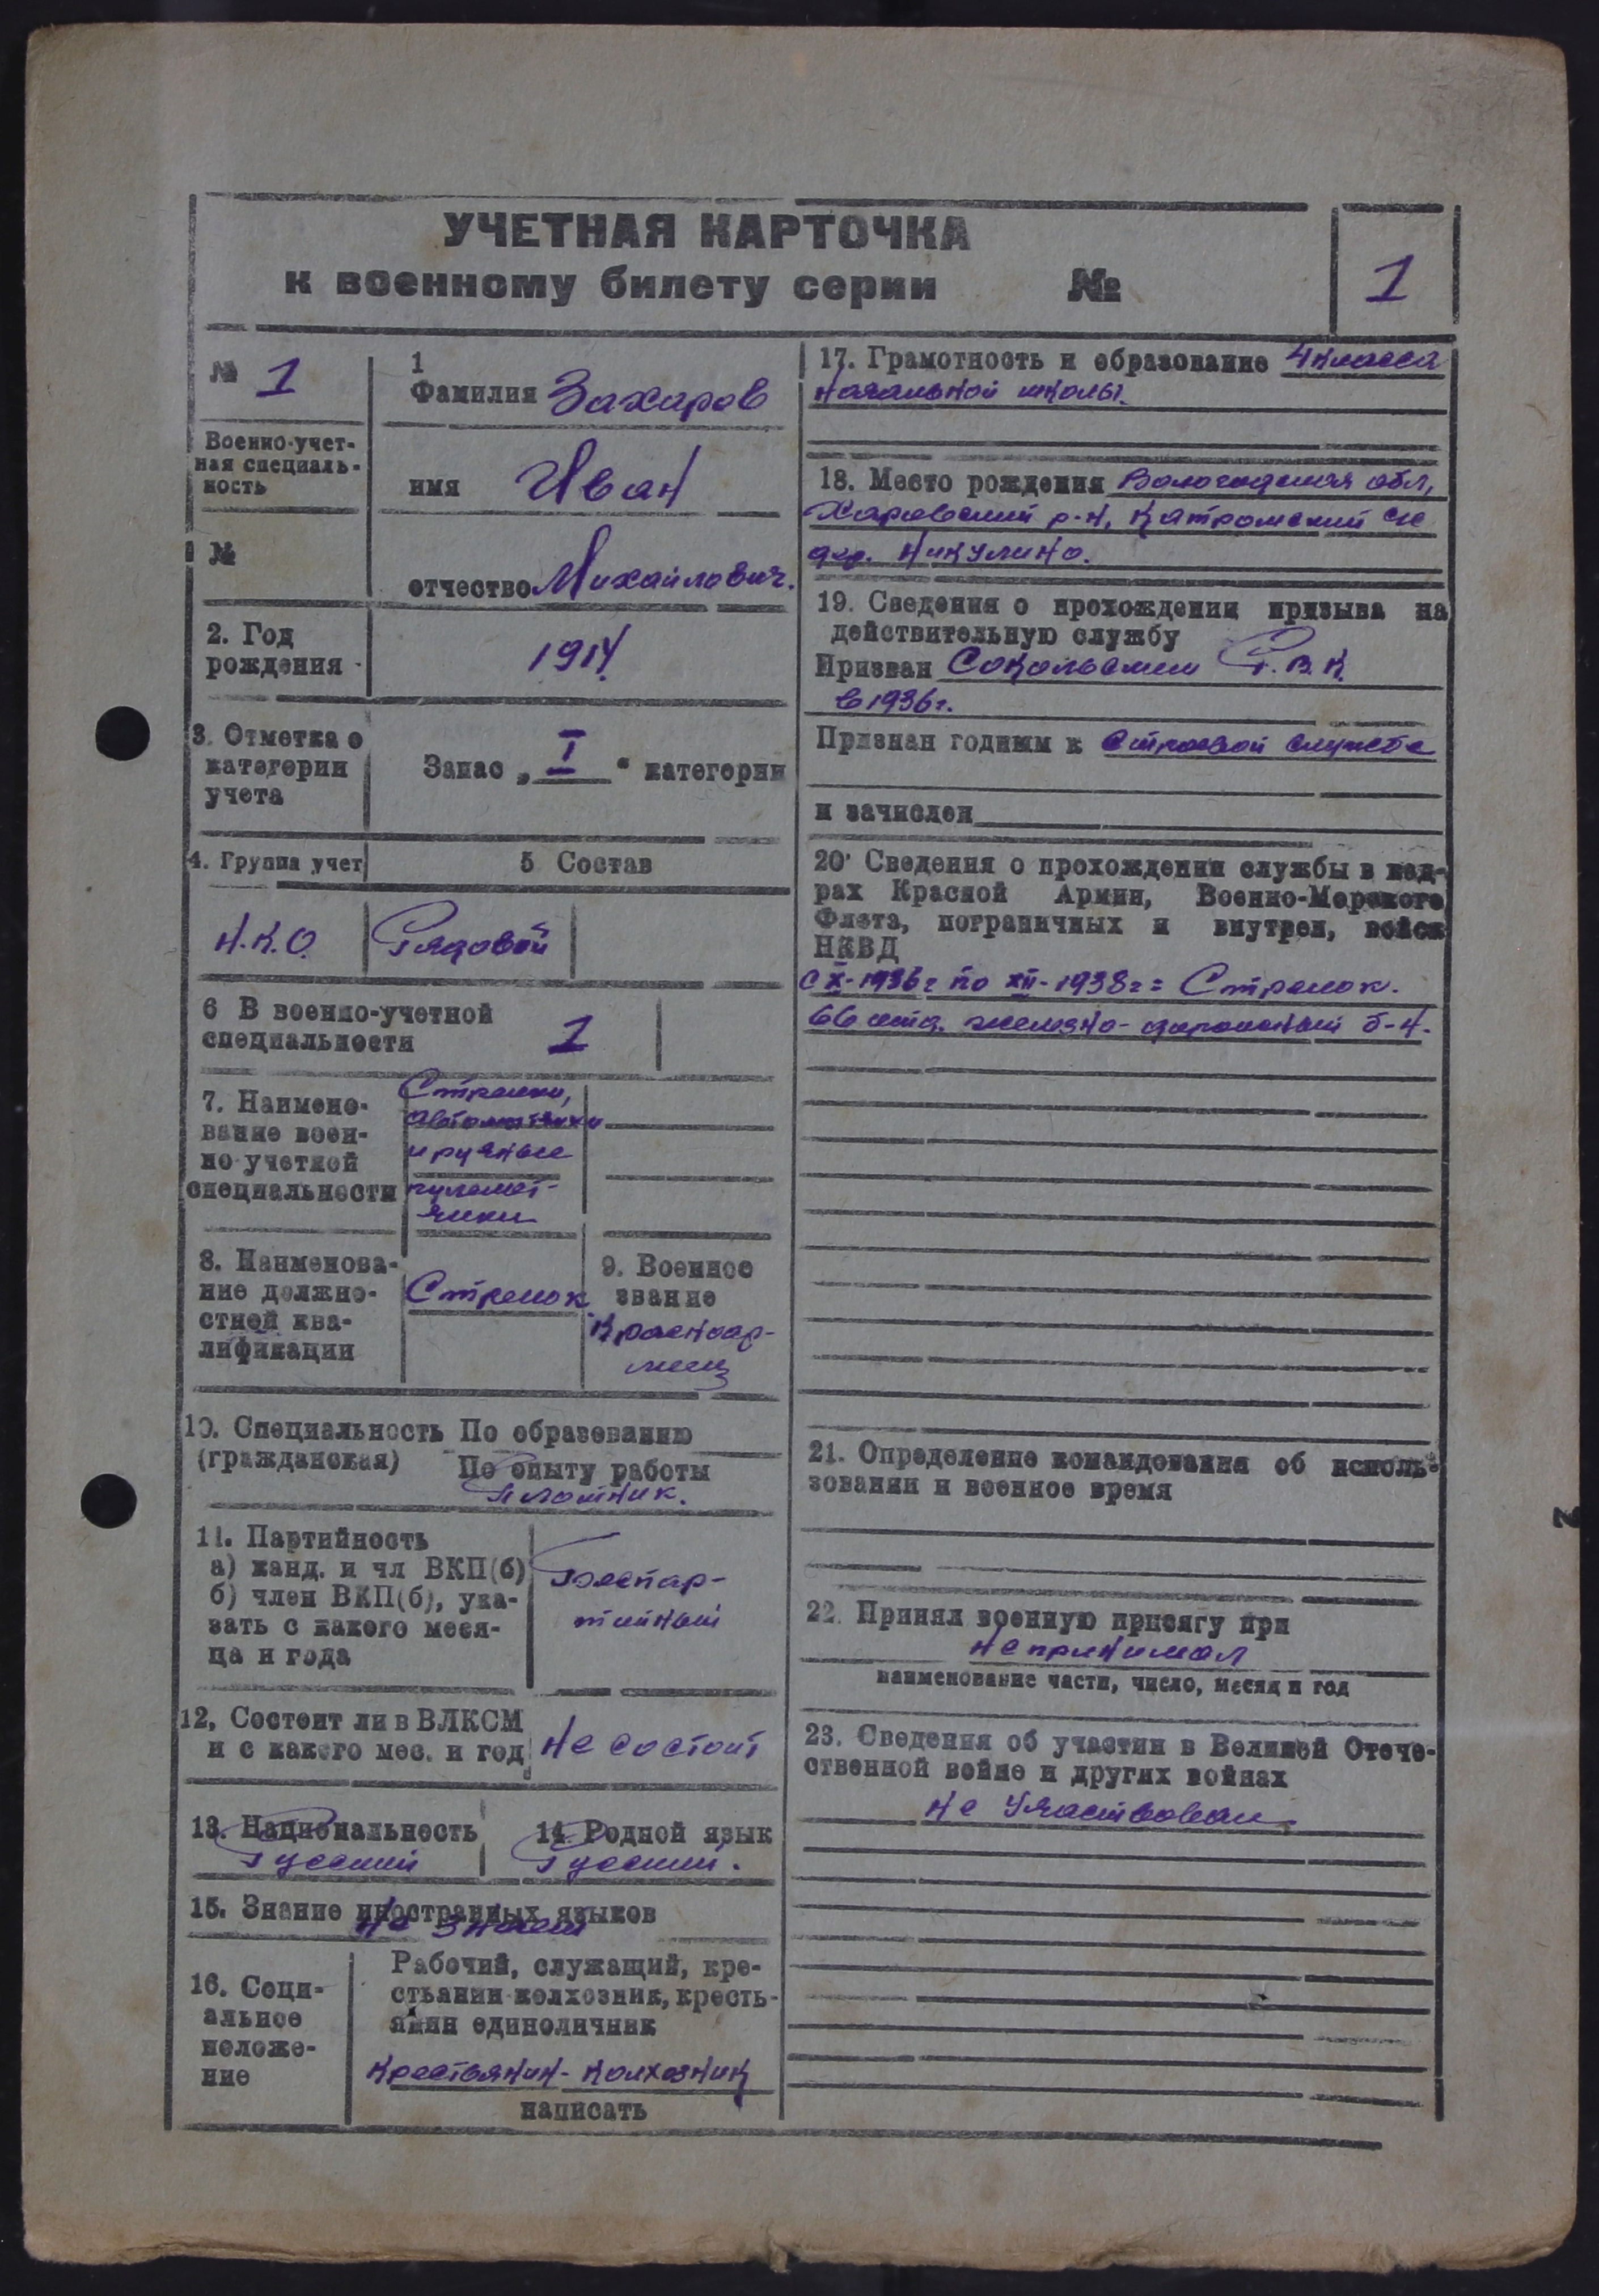 УЧЕТНАЯ КАРТОЧКА
к военному билету серии №
1
№ 1
Военно-учет-
ная специаль-
ность
№
1
Фамилия Захаров
имя Иван
отчество Михайлович.
2. Год
рождения
1914
3. Отметка о
категории
учета
Запас „ I “ категории
4. Группа учет
5 Состав
Н.К.О.
Рядовой
6 В военно-учетной
специальности
1
7. Наимено-
вание воен-
но-учетной
специальности
Стрелки,
автоматчики
и ручные
пулемет-
чики
8. Наименова-
ние должно-
стной ква-
лификации
Стрелок
9. Военное
звание
Красноар-
меец
10. Специальность По образованию
(гражданская)
По опыту работы
Плотник.
11. Партийность
а) канд. и чл ВКП(б)
б) член ВКП(б), ука-
зать с какого меся-
ца и года
Беспар-
тийный
12, Состоит ли в ВЛКСМ
и с какого мес. и год
Не состоит
13. Национальность
Русский
14 Родной язык
Русский.
15. Знание иностранных языков
Не знает
16. Соци-
альное
положе-
ние
Рабочий, служащий, кре-
стьянин-колхозник, кресть-
янин единоличник
Крестьянин-колхозник
написать
17. Грамотность и образование 4 класса
начальной школы.
18. Место рождения Вологодская обл,
Харовский р-н, Катромский с/с
дер. Никулино.
19. Сведения о прохождении призыва на
действительную службу
Призван Сокольским Р.В.К.
в 1936г.
Признан годным к строевой службе
и зачислен
20. Сведения о прохождении службы в кад-
рах Красной Армии, Военно-Морского
Флота, пограничных и внутрен, войск
НКВД
с X-1936г по XII-1938г = Стрелок.
66 отд. железно-дорожный б-н.
21. Определение командования об исполь-
зовании и военное время
22. Принял военную присягу при
не принимал
наименование части, число, месяц и год
23. Сведения об участии в Великой Отече-
ственной войне и других войнах
Не участвовал
2